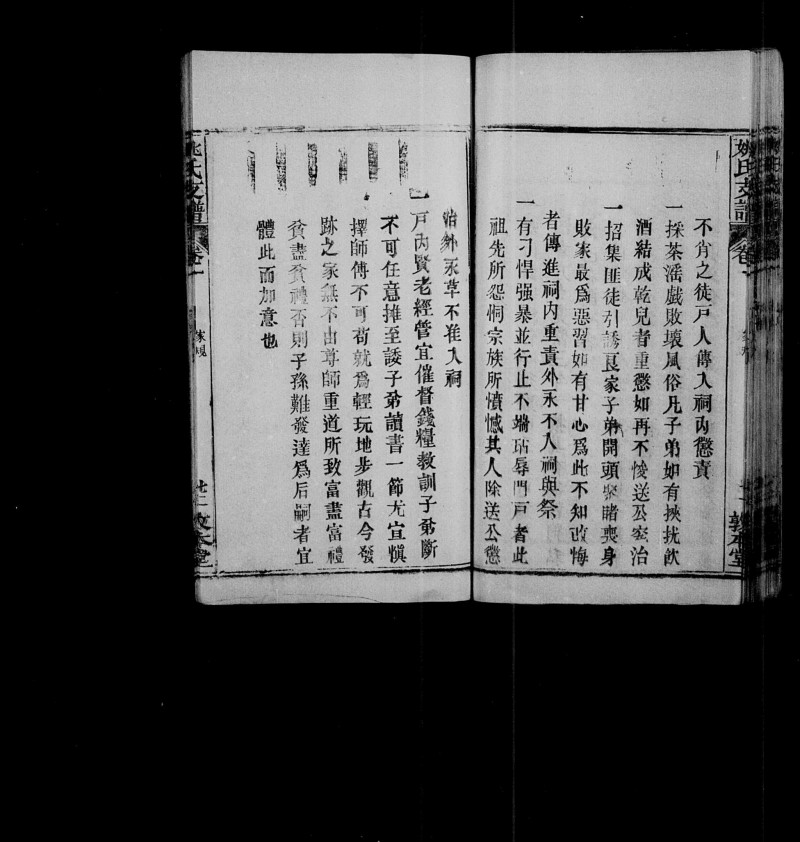 姚氏支譜
卷一
不肖之徒戸人傳入祠內懲責
一採茶滛戲敗壞風俗凡子弟如有挾扰飲
酒結成乾兒者重懲如再不悛送公寀治
一招集匪徒引誘良家子弟開頭緊賭喪身
敗家最爲惡習如有甘心爲此不知改悔
者傳進祠內重責外永不入祠與祭
一有刁悍强暴並行止不端玷辱門戸者此
祖先所怨恫宗族所憤憾其人除送公懲
治外永革不准入祠
一戸內賢老經管宜催督錢糧教訓子弟斷
不可任意推至諉子弟讀書一節尤宜愼
擇師傅不可苟就爲輕玩地步觀古今發
跡之家無不由尊師重道所致富盡富禮
貧盡貧禮否則子孫難發達爲后嗣者宜
體此而加意也
姚氏支譜
卷一
家規
廿二
敦本堂
敦本堂